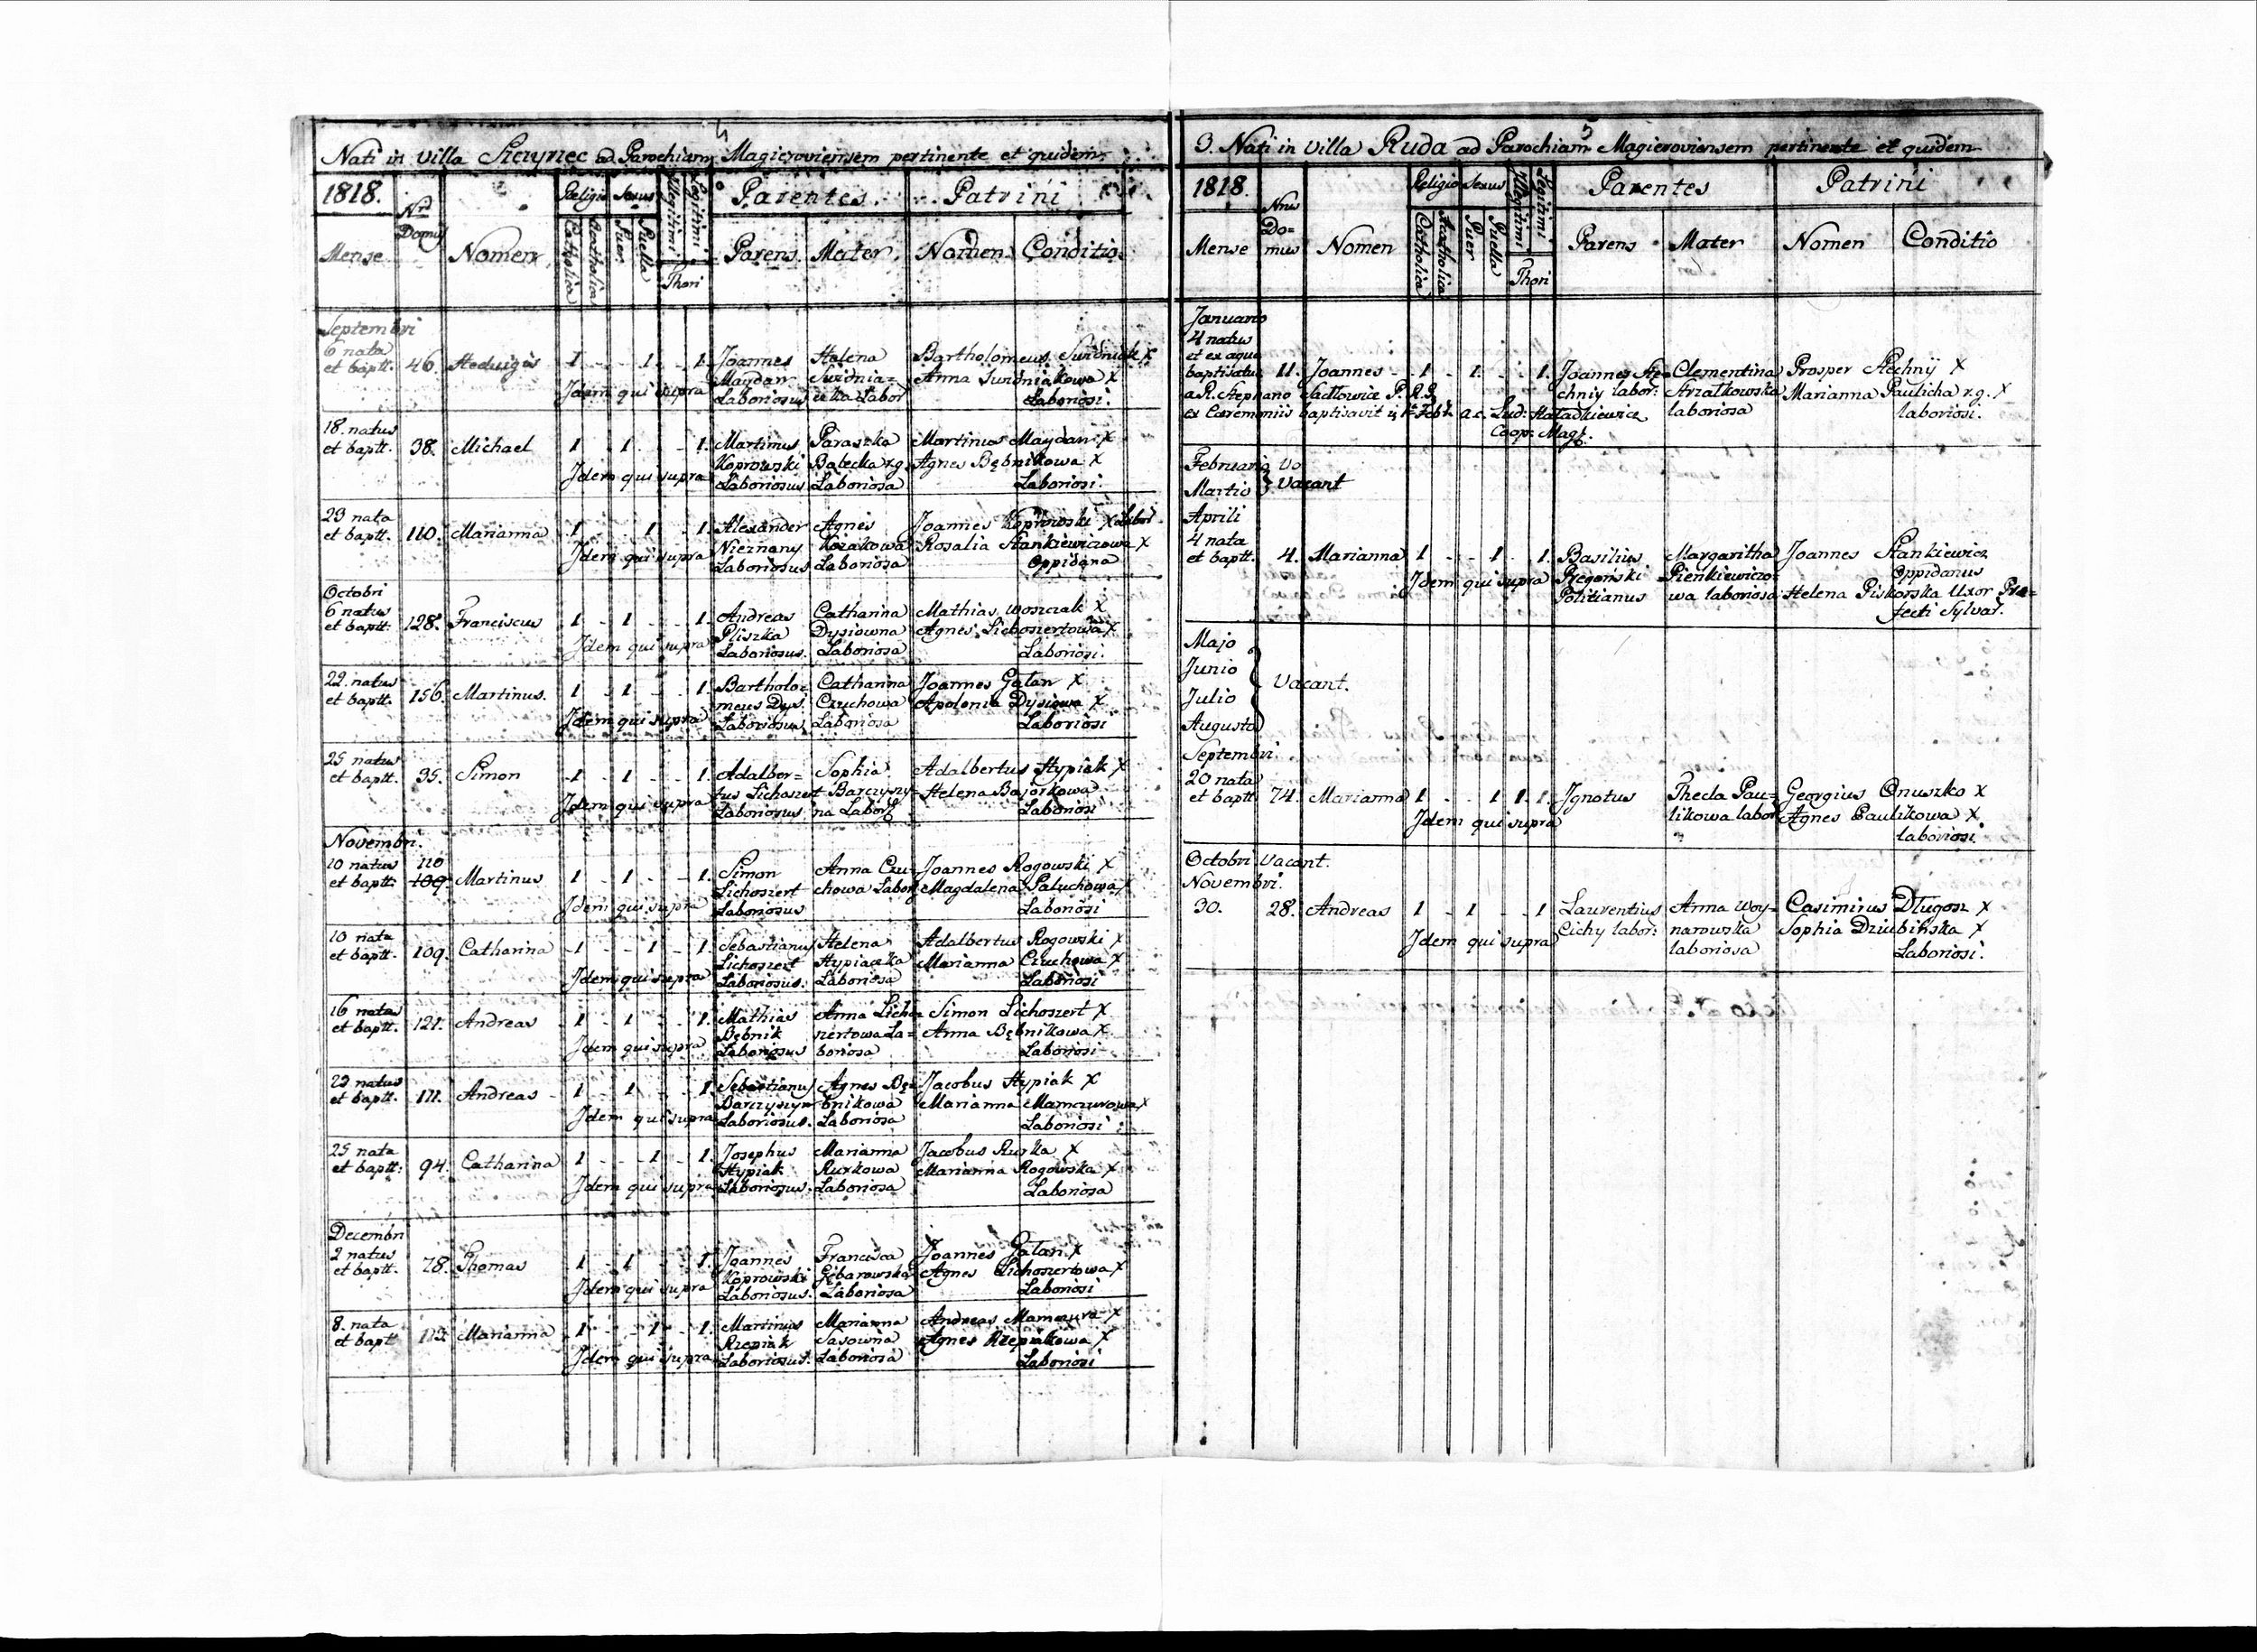 4
Nati in villa ad Parochiam Magieroviensem pertinente et quidem
1818. Nrus Domus Religio Sexus Illegitimi Legitimi Parentes Patrini
Mense Nomen Catholica Acatholica Puer Puella Thori Parens Mater Nomen Conditio
Septembri
6 nata Joannes Helena Bartholomeus Swidniak X
et baptt. 46. Hedvigis 1 - - 1 - 1. Maydan Swidnia- Anna Swidniakowa X
Idem qui supra Laboriosus Labor Laboriosi.
18. natus Martinus Paraszka Martinus Maydan X
et baptt. 38. Michael 1 - 1 - - 1. Koprowski Batecka r.g. Agnes Bębnikowa X
Idem qui supra Laboriosus Laboriosa Laboriosi.
23 nata Alexander Agnes Joannes Koprowski X Labor
et baptt. 110. Marianna 1 - - 1 - 1. Nieznany Kozakowa Rosalia Stankiewiczowa X
Idem qui supra Laboriosus Laboriosa Oppidana
Octobri
6 natus Andreas Catharina Mathias Woszczak X
et baptt. 128. Franciscus 1 - 1 - - 1. Pliszka Dysiowna Agnes Lichoszertowa X
Idem qui supra Laboriosus. Laboriosa Laboriosi.
22. natus Bartholo- Catharina Joannes Gałan X
et baptt. 156. Martinus. 1 - 1 - - 1. meus Dys. Czuchowa Apolonia Dysiowa X
Idem qui supra Laboriosus Laboriosa Laboriosi
25 natus Adalber- Sophia Adalbertus Hypiak X
et baptt. 35. Simon 1 - 1 - - 1. tus Lichoszert Barczyszy- Helena Bajorkowa
Idem qui supra Laboriosus na Labor Laboriosi
Novembri.
10 natus 110 Simon Anna Czu- Joannes Rogowski X
et baptt. 109. Martinus 1 - 1 - - 1. Lichoszert chowa Labor Magdalena Paluchowa X
Idem qui supra Laboriosus Laboriosi
10 nata Sebastianus Helena Adalbertus Rogowski X
et baptt. 109. Catharina 1 - - 1 - 1. Lichoszert Hypiaczka Marianna Czuchowa X
Idem qui supra Laboriosus. Laboriosa Laboriosi
16 natus Mathias Anna Licho- Simon Lichoszert X
et baptt. 121. Andreas 1 - 1 - - 1. Bębnik szertowa La- Anna Bębnikowa X
Idem qui supra Laboriosus boriosa Laboriosi
natus Sebastianus Agnes Bę- Jacobus Hypiak X
et baptt. 111. Andreas 1 - 1 - - 1. Barczyszyn bnikowa Marianna Mamczurowa X
Idem qui supra Laboriosus. Laboriosa Laboriosi
25 nata Josephus Marianna Jacobus Rurka X
et baptt. 94. Catharina 1 - - 1 - 1. Hypiak Rurkowa Marianna Rogowska X
Idem qui supra Laboriosus. Laboriosa Laboriosa
Decembri
2 natus Joannes Francisca Joannes Gałan X
et baptt. 78. Thomas 1 - 1 - - 1. Koprowski Gębarowska Agnes Lichoszertowa X
Idem qui supra Laboriosus. Laboriosa Laboriosi
8. nata Martinus Marianna Andreas Mamczura X
et baptt Marianna 1 - - 1 - 1. Rzepiak Sasowna Agnes Rzepiakowa X
Idem qui supra Laboriosus. Laboriosa Laboriosi
5
3. Nati in villa Ruda ad Parochiam Magieroviensem pertinente et quidem
1818. Nrus Domus Religio Sexus Illegitimi Legitimi Parentes Patrini
Mense Nomen Catholica Acatholica Puer Puella Thori Parens Mater Nomen Conditio
Januario
4 natus
et ex aqua
baptisatus 11. Joannes - 1 - 1 - - 1. Joannes Ste- Clementina Prosper Stechnÿ X
a R. Stephano P.R.G. chnÿ labor: Strzałkowska Marianna Paulicha r.g. X
ex Ceremoniis baptisavit a.c. Lud: Hatadkiewicz laboriosa laboriosi.
Coop: Mag.
Februario
Martio } Vacant
Aprili
4 nata
et baptt. 4. Marianna 1 - - 1 - 1. Basilius Margaritha Joannes Stankiewicz
Idem qui supra Pienkiewiczo- Oppidanus
wa laboriosa Helena Piskorska Uxor Præ-
fecti Sylvar.
Majo
Junio
Julio } Vacant.
Augusto
Septembri.
20 nata
et baptt 74. Marianna 1 - - 1 1. 1. Ignotus Thecla Pau- Georgius Onuszko X
Idem qui supra likowa labor Agnes Paulikowa X
laboriosi.
Octobri Vacant.
Novembri.
30. 28. Andreas 1 - 1 - - 1 Laurentius Anna Woy- Casimirus Długosz X
Idem qui supra Cichy labor: narowska Sophia Dziubińska X
laboriosa Laboriosi.